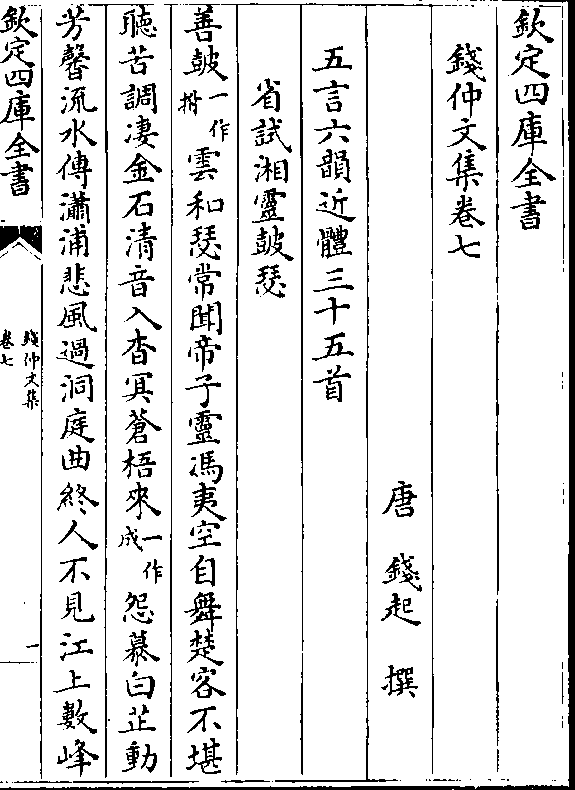 欽定四庫全書
錢仲文集卷七
唐 錢起 撰
五言六韻近體三十五首
省試湘靈皷瑟
善皷一作拊雲和瑟常聞帝子靈馮夷空自舞楚客不堪
聽苦調凄金石清音入杳冥蒼梧來一作成怨慕白芷動
芳馨流水傳瀟浦悲風過洞庭曲終人不見江上數峰
欽定四庫全書
錢仲文集
卷七
一